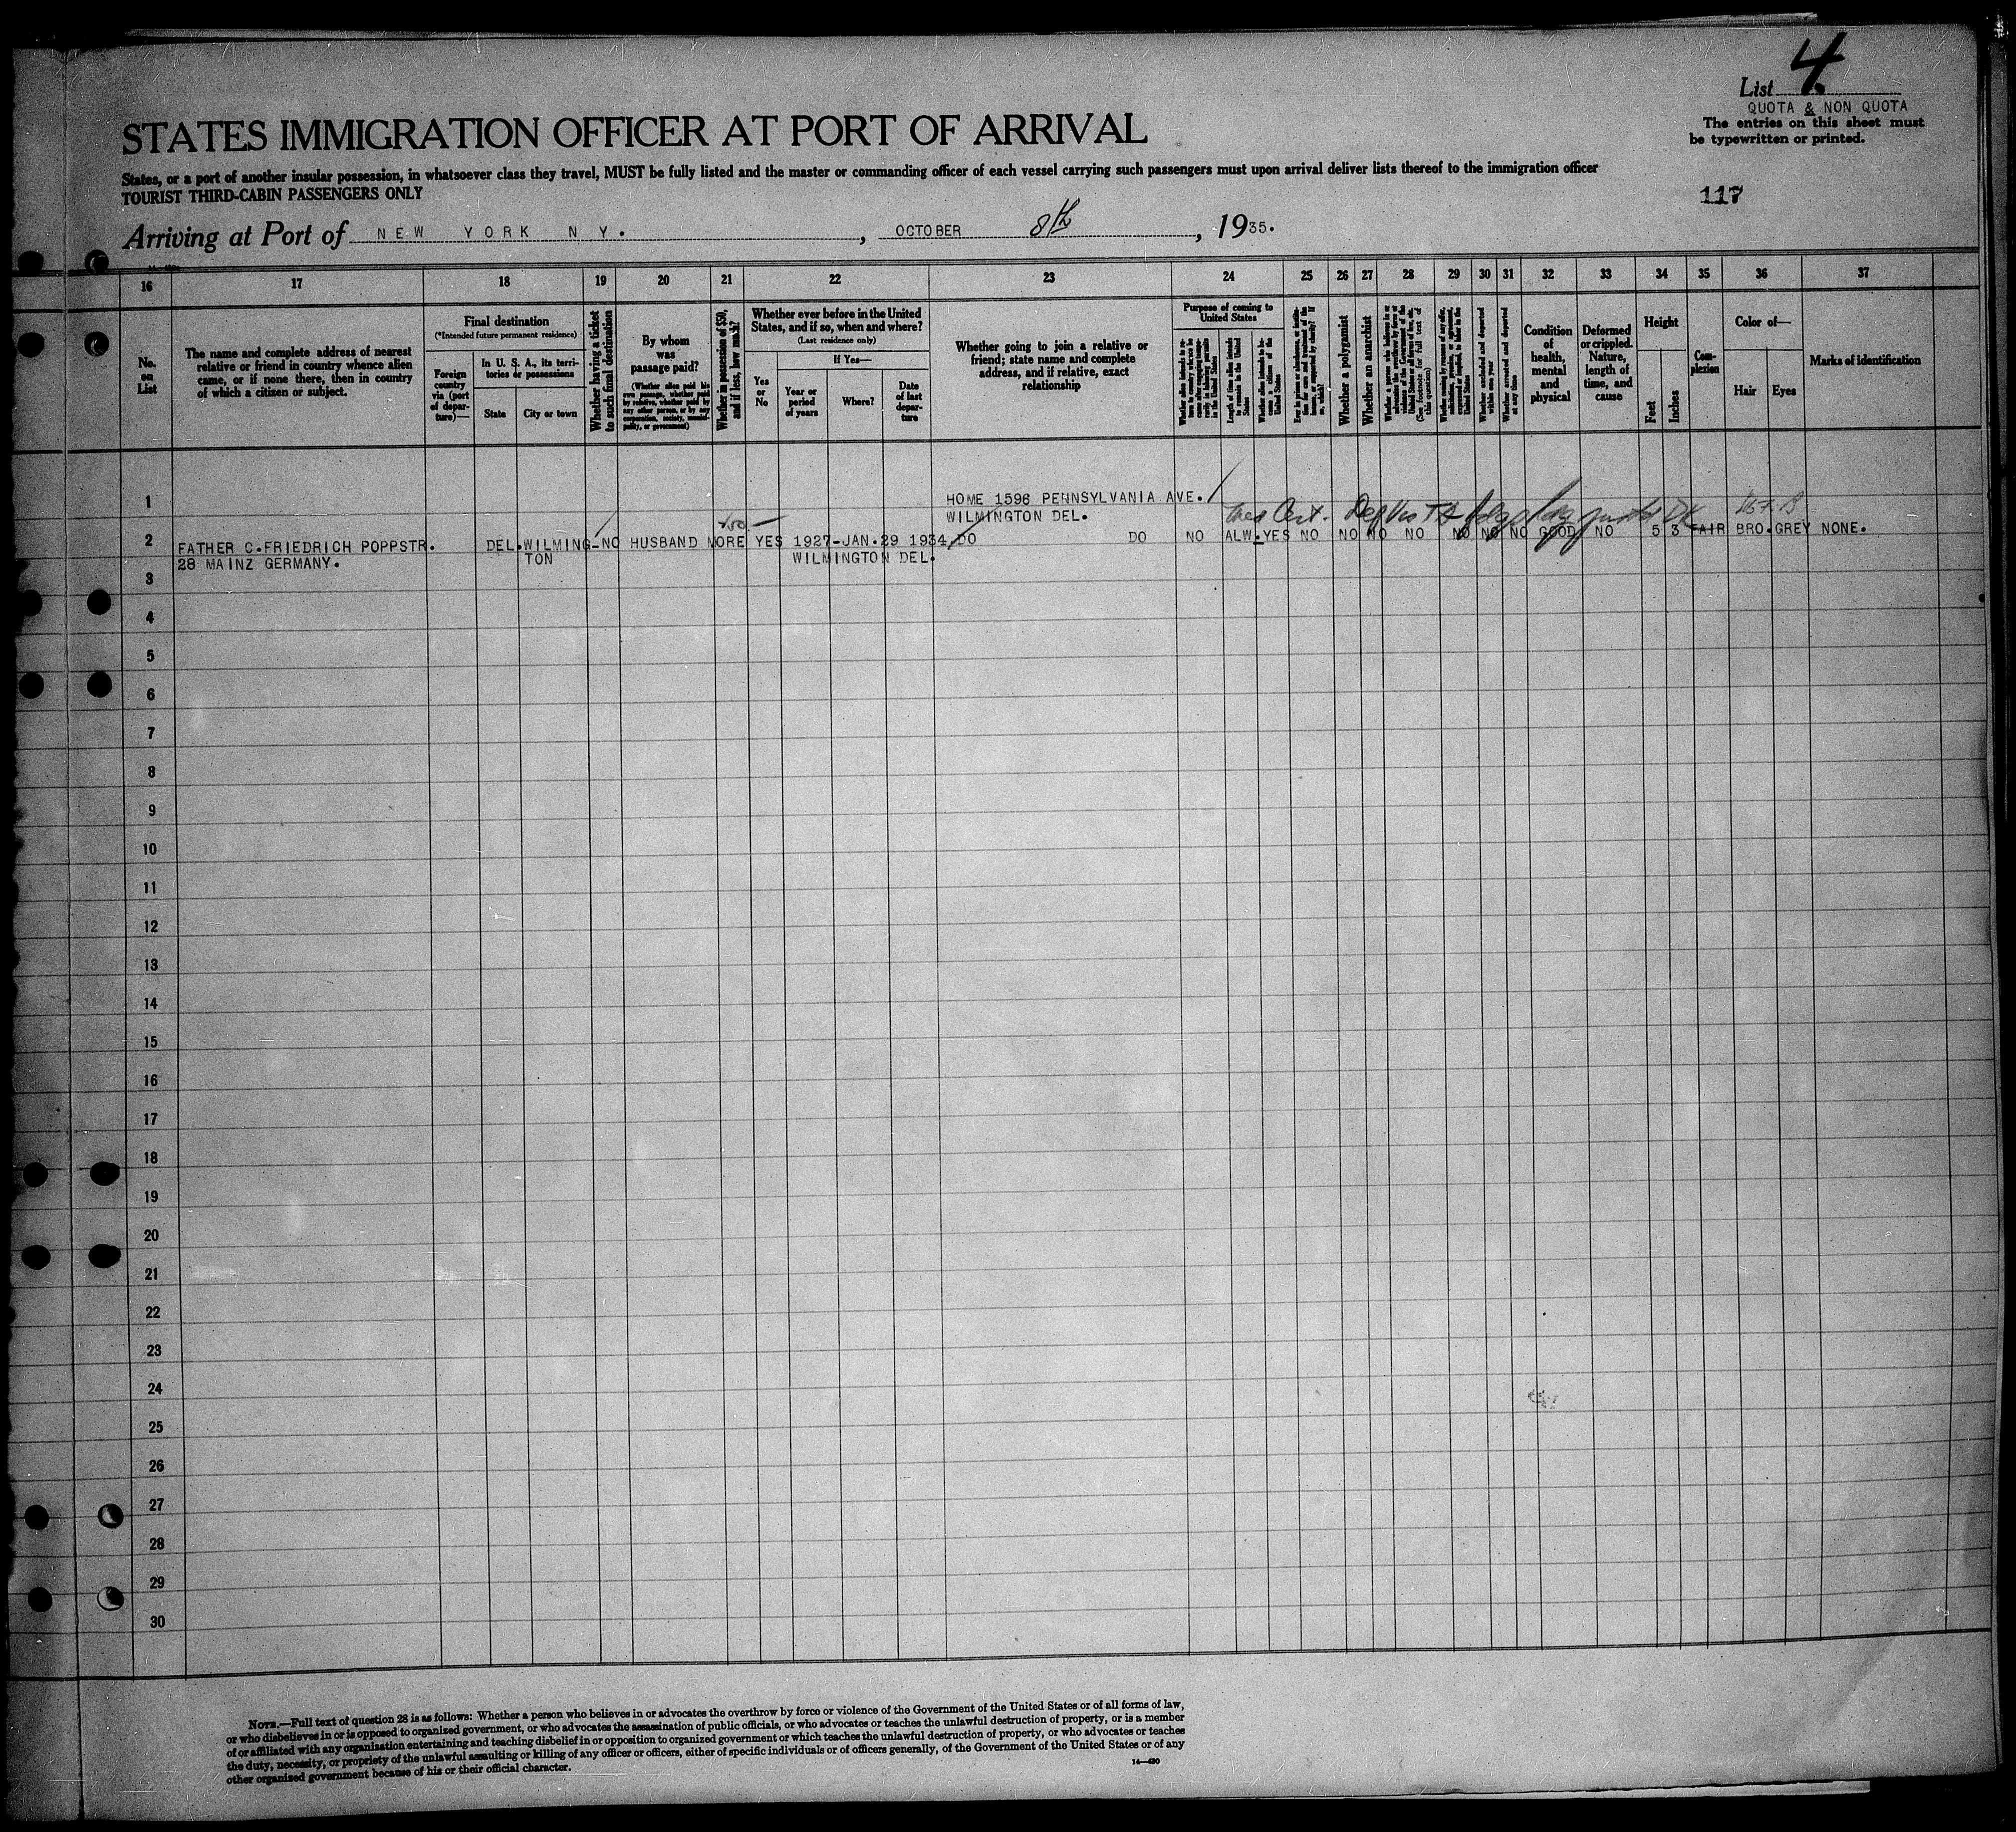 List 4.
QUOTA & NON QUOTA
The entries on this sheet must
be typewritten or printed.
STATES IMMIGRATION OFFICER AT PORT OF ARRIVAL
States, or a port of another insular possession, in whatsoever class they travel, MUST be fully listed and the master or commanding officer of each vessel carrying such passengers must upon arrival deliver lists thereof to the immigration officer
TOURIST THIRD-CABIN PASSENGERS ONLY
117
Arriving at Port of NEW YORK N Y. , OCTOBER 8th , 1935.
16 17 18 19 20 21 22 23 24 25 26 27 28 29 30 31 32 33 34 35 36 37
No.
on
List
The name and complete address of nearest
relative or friend in country whence alien
came, or if none there, then in country
of which a citizen or subject.
Final destination
(*Intended future permanent residence)
Foreign
country
via (port
of depar-
ture)—
In U. S. A., its terri-
tories or possessions
State
City or town
Whether having a ticket
to such final destination
By whom
was
passage paid?
(Whether alien paid his
own passage, whether paid
by relative, whether paid by
any other person, or by any
corporation, society, munici-
pality, or government)
Whether in possession of $50,
and if less, how much?
Whether ever before in the United
States, and if so, when and where?
(Last residence only)
Yes
or
No
If Yes—
Year or
period
of years
Where?
Date
of last
depar-
ture
Whether going to join a relative or
friend; state name and complete
address, and if relative, exact
relationship
Purpose of coming to
United States
Length of time alien intends
to remain in the United
States
Whether alien intends to be-
come a citizen of the
United States
Whether a polygamist
Whether an anarchist
(See footnote for full text of
this question)
Whether excluded and deported
within one year
Whether arrested and deported
at any time
Condition
of
health,
mental
and
physical
Deformed
or crippled.
Nature,
length of
time, and
cause
Height
Feet
Inches
Com-
plexion
Color of—
Hair
Eyes
Marks of identification
1 HOME 1596 PENNSYLVANIA AVE.
WILMINGTON DEL.
2 FATHER C.FRIEDRICH POPPSTR. DEL. WILMING- NO HUSBAND MORE YES 1927-JAN.29 1934 DO DO NO ALW. YES NO NO NO NO NO NO NO GOOD NO 5 3 FAIR BRO. GREY NONE.
28 MAINZ GERMANY. TON WILMINGTON DEL.
3
4
5
6
7
8
9
10
11
12
13
14
15
16
17
18
19
20
21
22
23
24
25
26
27
28
29
30
NOTE.—Full text of question 28 is as follows: Whether a person who believes in or advocates the overthrow by force or violence of the Government of the United States or of all forms of law,
or who disbelieves in or is opposed to organized government, or who advocates the assassination of public officials, or who advocates or teaches the unlawful destruction of property, or is a member
of or affiliated with any organization entertaining and teaching disbelief in or opposition to organized government or which teaches the unlawful destruction of property, or who advocates or teaches
the duty, necessity, or propriety of the unlawful assaulting or killing of any officer or officers, either of specific individuals or of officers generally, of the Government of the United States or of any
other organized government because of his or their official character.
14—430